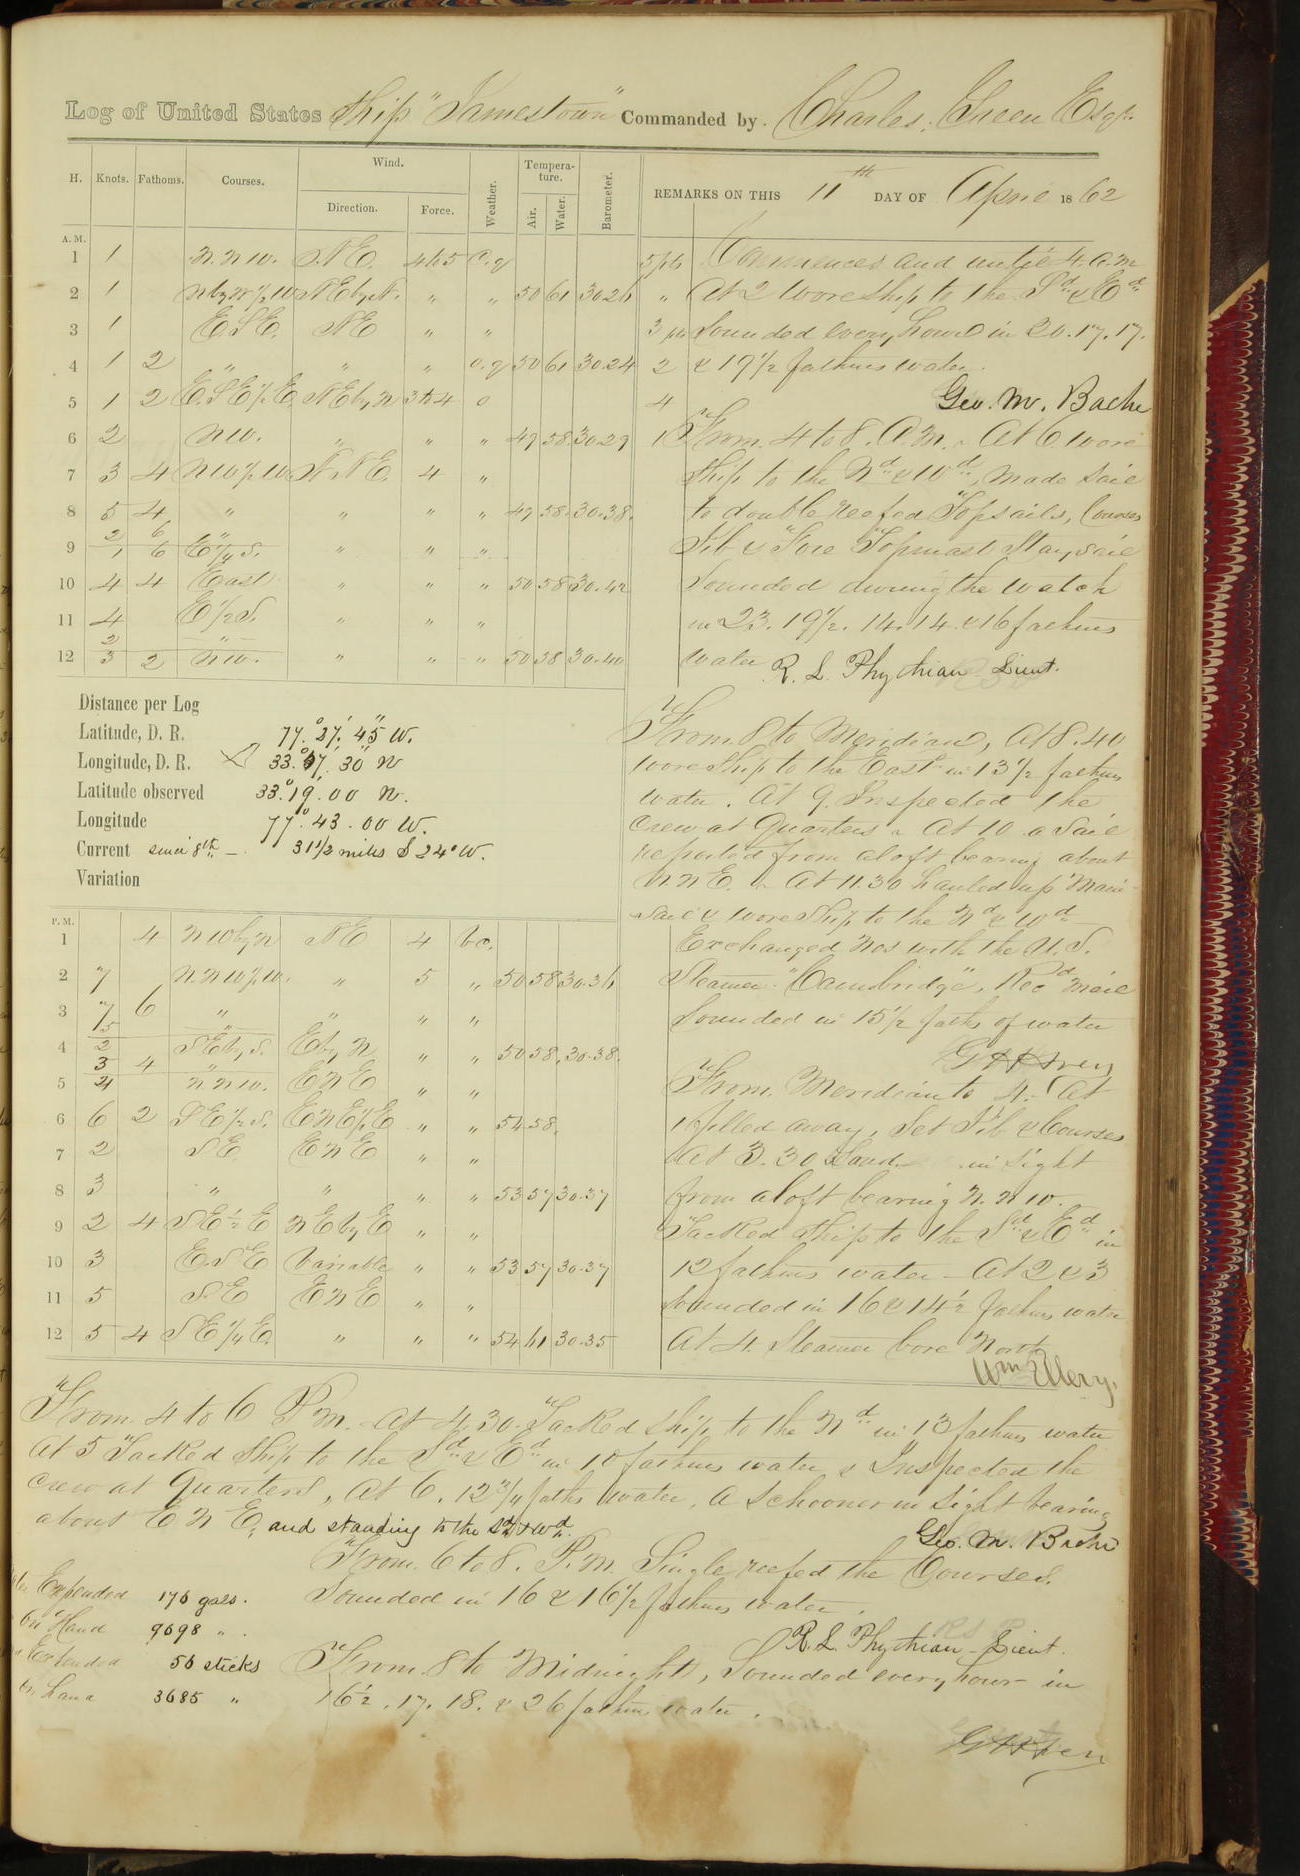 Log of United States Ship "Jamestown" Commanded by Charles Green Esqr.
H. Knots. Fathoms. Courses. Wind. Direction. Force. Weather. Temperature. Air. Water. Barometer. REMARKS ON THIS 11th DAY OF April 1862
A. M.
1 1 N.N.W. N.E. 4 to 5 o.q 5 pts Commences and until 4. a.m
2 1 N by W 1/2 W N.E by N. " " 50 61 30.26 " At 2 Wore ship to the Sd & Ed
3 1 E.S.E. N.E " " 3 pts Sounded every hour in 20. 17. 17.
4 1 2 " " " o.q 50 61 30.24 2 & 19 1/2 fathms water.
5 1 2 E.S.E 1/2 E N.E by N 3 to 4 o 4 Geo. M. Bache
6 2 N.W. " " " 49 58 30.29 1 From 4 to 8. A.M. At 6 wore
7 3 4 N.W 1/2 W N.N.E. 4 " ship to the Nd & Wd, made sail
8 5 4 " " " " 49 58 30.38. to double reefed Topsails, Courses
9 2 6 " 1 6 E 1/4 S. " " " Jib & Fore Topmast Staysail
10 4 4 East " " " 50 58 30.42 Sounded during the watch
11 4 E 1/2 S. " " " in 23. 19 1/2. 14. 14. & 16 fathms
12 2 " 3 2 N.W. " " " 50 58 30.40 water R. L. Phythian Lieut.
Distance per Log
Latitude, D. R. 77.° 27.' 45" W.
Longitude, D. R. 33.° 57.' 30" N
Latitude observed 33.° 19. 00 N.
Longitude 77.° 43. 00 W.
Current since 8th — 31 1/2 miles S 24° W.
Variation
From 8 to Meridian, At 8.40
wore ship to the East in 13 1/2 fathms
water. At 9. Inspected the
crew at Quarters. At 10 a Sail
reported from aloft bearing about
N.N.E. At 11.30 hauled up Main
sail & wore ship to the Nd & Wd
P. M.
1 4 N.W by N N.E 4 b.c. Exchanged Nos with the U.S.
2 7 N.N.W 1/2 W. " 5 " 50 58 30.36 Steamer "Cambridge", Recd mail
3 7 6 " " " " Sounded in 15 1/2 faths of water
4 2 S.E by S. E by N " " 50 58. 30.38.
3 4 " From Meridian to 4. At
5 4 N.N.W. E.N.E " " 1 filled away, Set Jib & Courses
6 6 2 S.E 1/2 S. E.N.E 1/2 E " " 54 58. At 3.30 Land in sight
7 2 S.E E.N.E " "
8 3 " " " " 53 57 30.37 from aloft bearing N.N.W.
9 2 4 S.E 1/2 E N.E by E " " Tacked ship to the Sd & Ed in
10 3 E.S.E Variable " " 53 57 30.37 12 fathms water — At 2 & 3
11 5 S.E E.N.E " " Sounded in 16 & 14 1/2 fathms water
12 5 4 S.E 1/4 E. " " " 54 61 30.35 At 4. Steamer bore North
Wm Ellery.
From 4 to 6 P.M. At 4.30 Tacked ship to the Nd in 13 fathms water
At 5 Tacked Ship to the Sd & Ed in 10 fathms water & Inspected the
crew at Quarters, At 6. 12 3/4 faths water, A Schooner in sight bearing
about E.N.E, and standing to the Sd & Wd. Geo. M. Bache
From 6 to 8. P.M. Single reefed the Courses.
Expended 176 gals. Sounded in 16 & 16 1/2 fathms water.
On Hand 9098 " R. L. Phythian Lieut.
Expended 56 sticks From 8 to Midnight, Sounded every hour in
On hand 3685 " 16 1/2. 17. 18. & 26 fathms water.